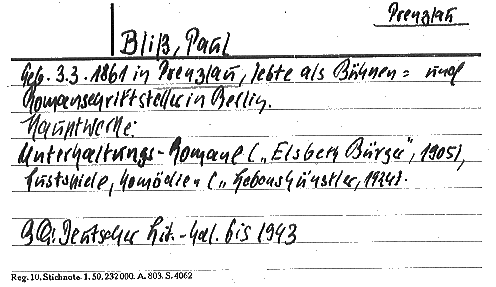 Prenzlau
Bliß, Paul
Geb. 3.3.1861 in Prenzlau, lebte als Bühnen= und
Romanschriftsteller in Berlin.
Hauptwerke:
Unterhaltungs-Romane („Elsberg Bürger", 1905),
Lustspiele, Komödien („Lebenskünstler, 1924).
Deutscher Lit.-Kal. bis 1943
Reg. 10. Stichnote. 1. 50. 232000. A. 803. S. 4062